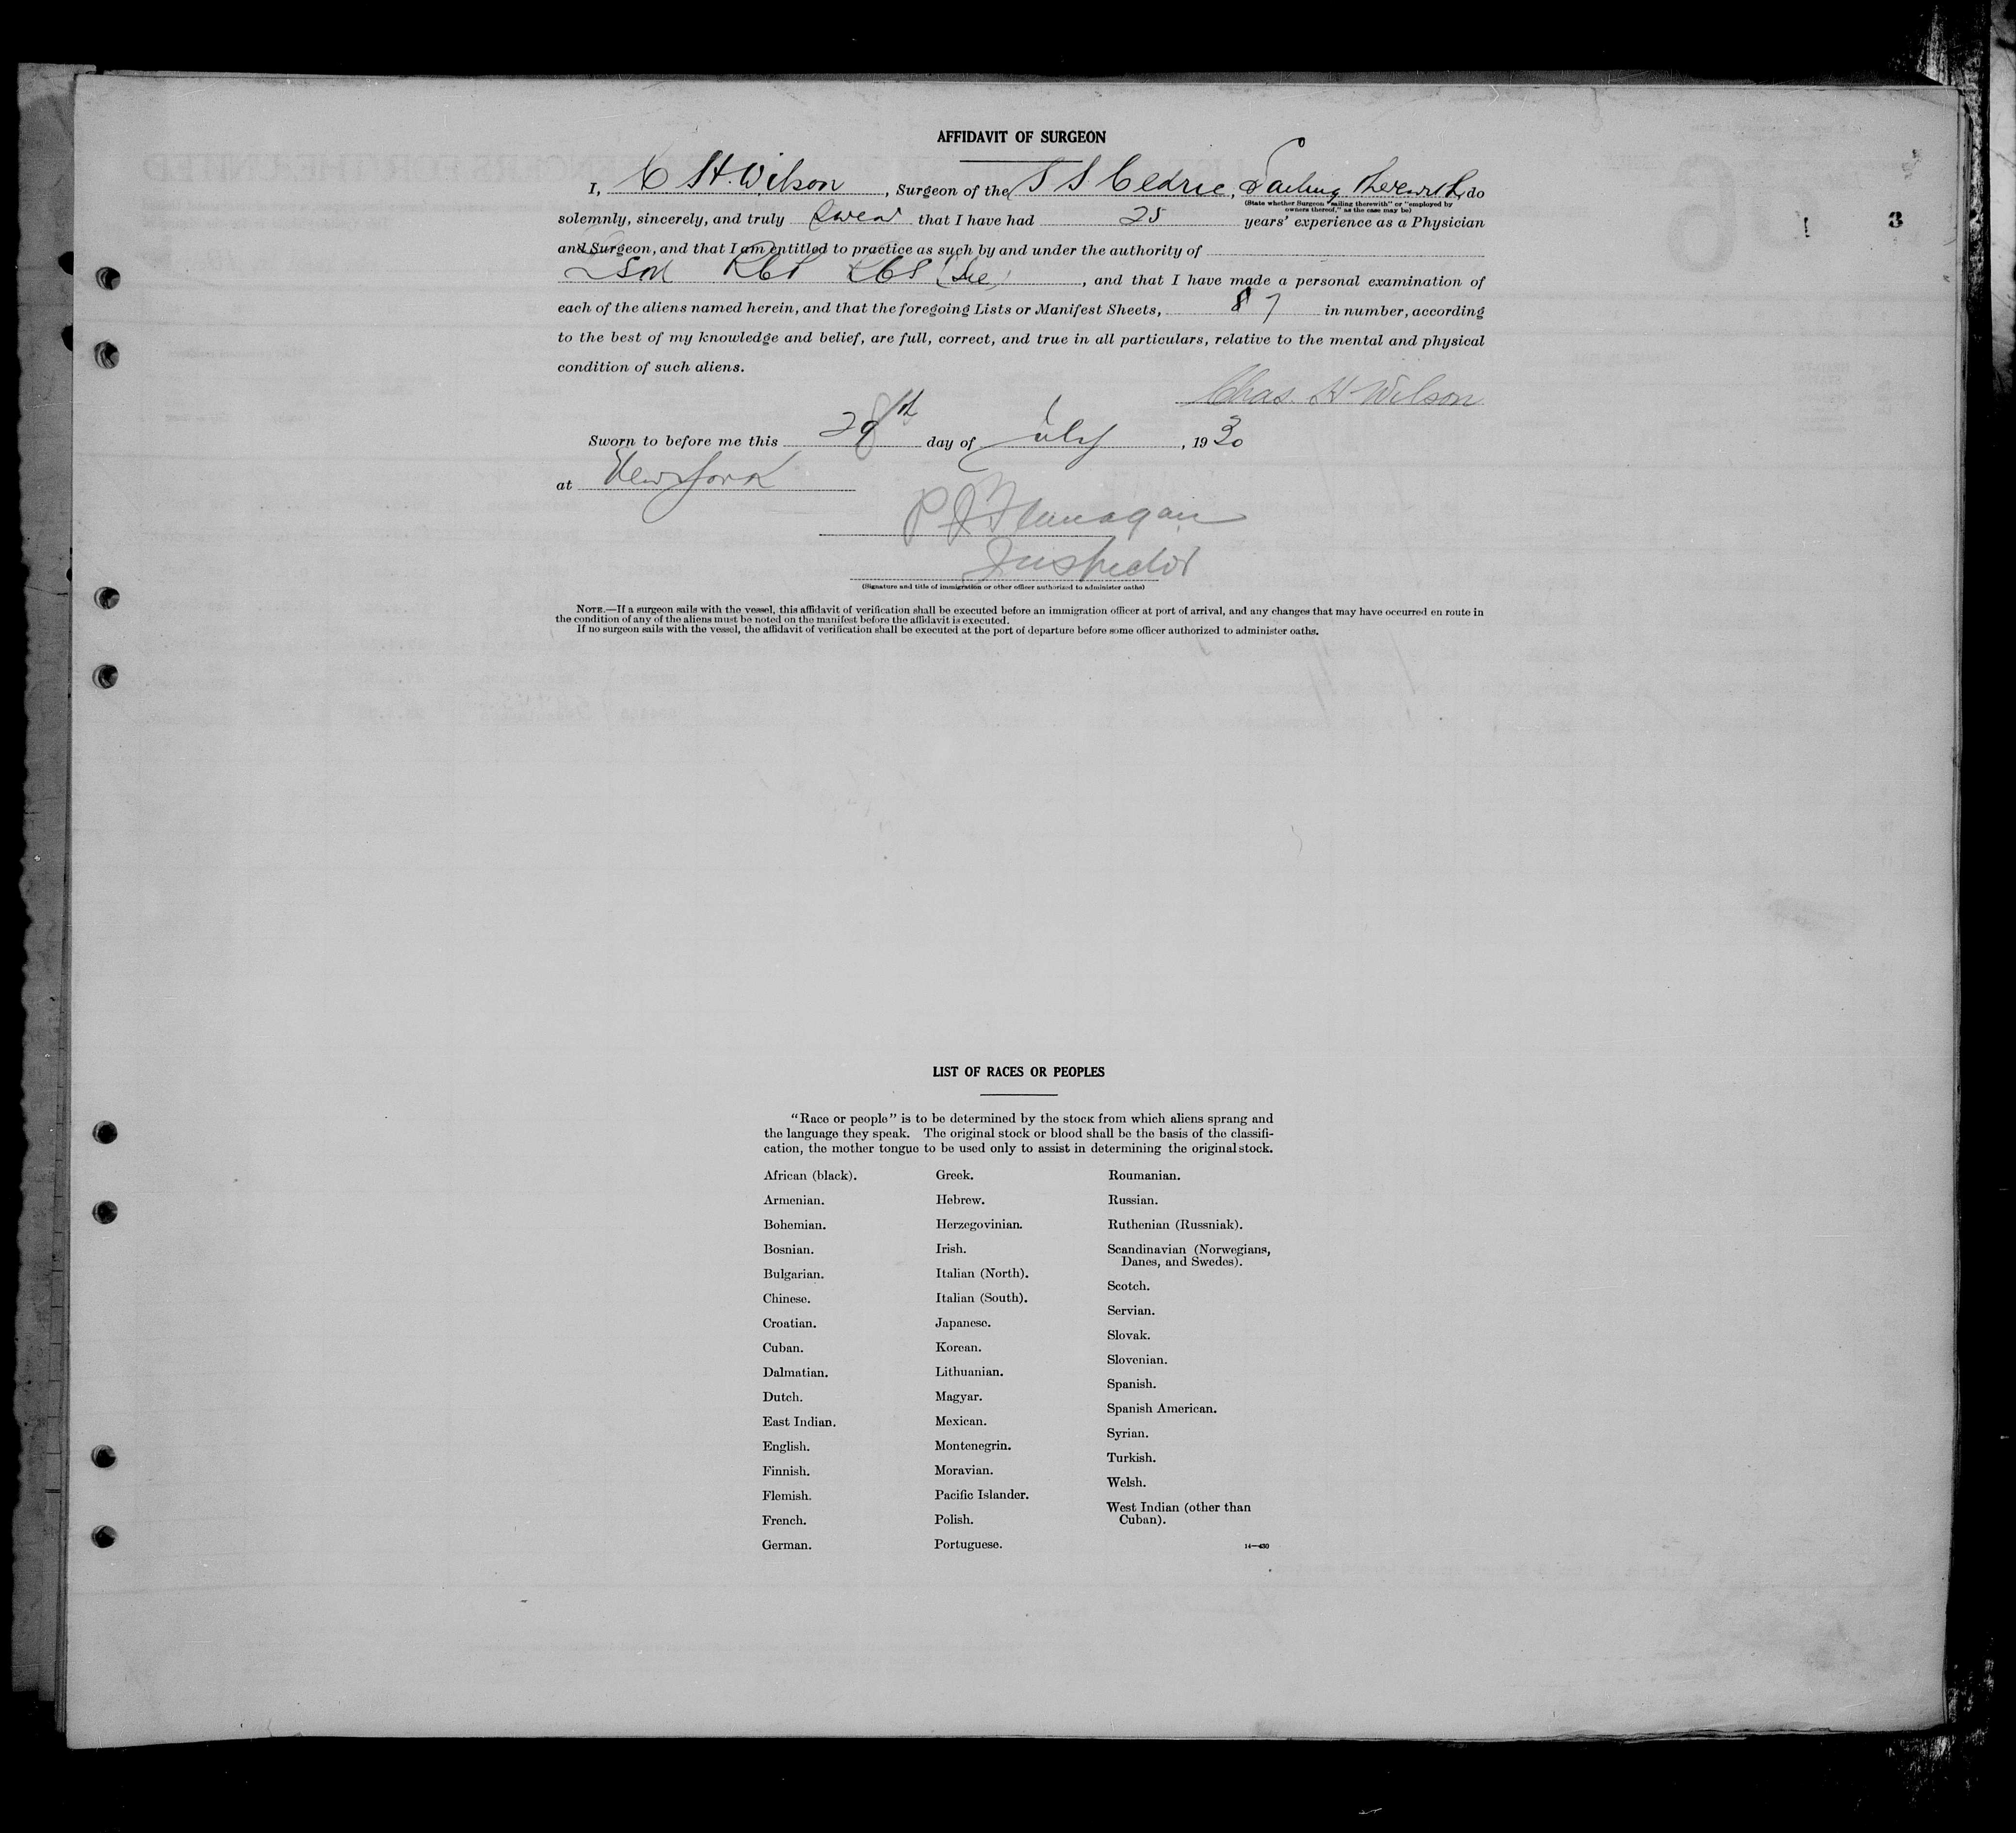 AFFIDAVIT OF SURGEON
I, C H. Wilson, Surgeon of the S S Cedric, Sailing therewith, do
(State whether Surgeon "sailing therewith" or "employed by
owners thereof," as the case may be)
solemnly, sincerely, and truly swear that I have had 25 years' experience as a Physician
and Surgeon, and that I am entitled to practice as such by and under the authority of
, and that I have made a personal examination of
each of the aliens named herein, and that the foregoing Lists or Manifest Sheets, 87 in number, according
to the best of my knowledge and belief, are full, correct, and true in all particulars, relative to the mental and physical
condition of such aliens.
Chas. H Wilson
Sworn to before me this th day of July, 1930
at New York
P J Flanagan
Inspector
(Signature and title of immigration or other officer authorized to administer oaths)
NOTE.—If a surgeon sails with the vessel, this affidavit of verification shall be executed before an immigration officer at port of arrival, and any changes that may have occurred en route in
the condition of any of the aliens must be noted on the manifest before the affidavit is executed.
If no surgeon sails with the vessel, the affidavit of verification shall be executed at the port of departure before some officer authorized to administer oaths.
3
LIST OF RACES OR PEOPLES
"Race or people" is to be determined by the stock from which aliens sprang and
the language they speak. The original stock or blood shall be the basis of the classifi-
cation, the mother tongue to be used only to assist in determining the original stock.
African (black).
Armenian.
Bohemian.
Bosnian.
Bulgarian.
Chinese.
Croatian.
Cuban.
Dalmatian.
Dutch.
East Indian.
English.
Finnish.
Flemish.
French.
German.
Greek.
Hebrew.
Herzegovinian.
Irish.
Italian (North).
Italian (South).
Japanese.
Korean.
Lithuanian.
Magyar.
Mexican.
Montenegrin.
Moravian.
Pacific Islander.
Polish.
Portuguese.
Roumanian.
Russian.
Ruthenian (Russniak).
Scandinavian (Norwegians,
Danes, and Swedes).
Scotch.
Servian.
Slovak.
Slovenian.
Spanish.
Spanish American.
Syrian.
Turkish.
Welsh.
West Indian (other than
Cuban).
14—430